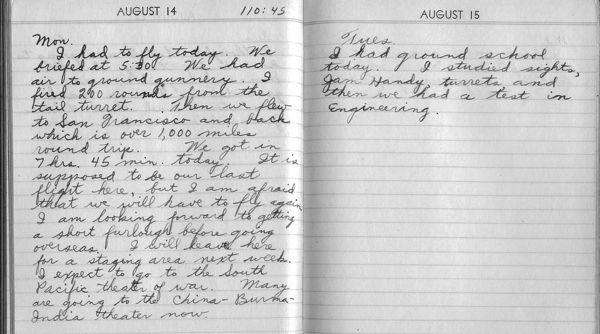 AUGUST 14 110:45
Mon.
I had to fly today. We
briefed at 5:30 We had
air to ground gunnery. I
fired 200 rounds from the
tail turret. Then we flew
to San Francisco and back
which is over 1,000 miles
round trip. We got in
7 hrs. 45 min. today. It is
supposed to be our last
flight here, but I am afraid
that we will have to fly again.
I am looking forward to getting
a short furlough before going
overseas. I will leave here
for a staging area next week.
I expect to go to the South
Pacific theater of war. Many
are going to the China-Burma-
India theater now.
AUGUST 15
Tues.
I had ground school
today. I studied sights,
Jam Handy turrets and
then we had a test in
Engineering.